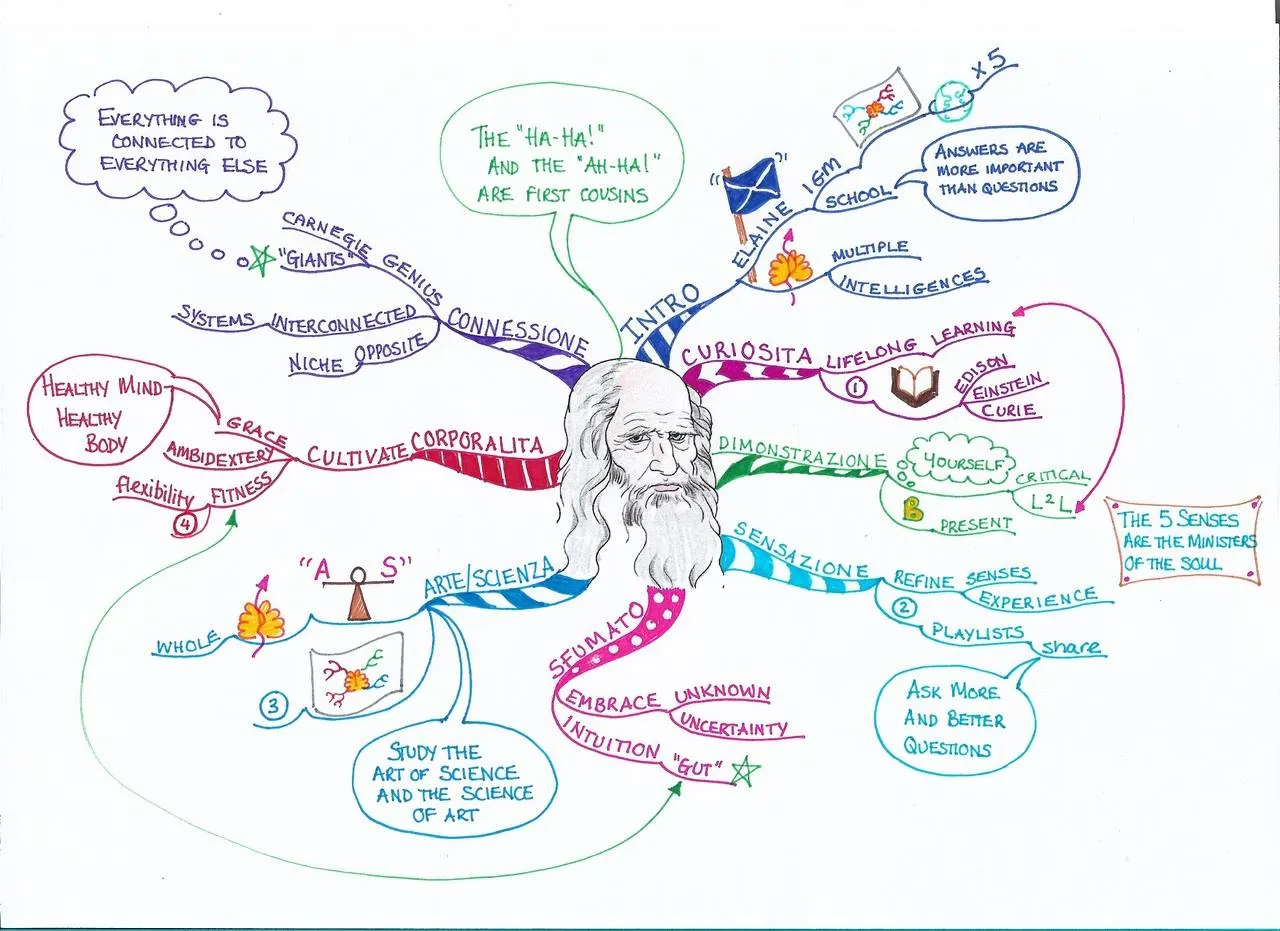 EVERYTHING IS
CONNECTED TO
EVERYTHING ELSE
THE "HA-HA!"
AND THE "AH-HA!"
ARE FIRST COUSINS
INTRO
" "
ELAINE
IGM
x 5
SCHOOL
ANSWERS ARE
MORE IMPORTANT
THAN QUESTIONS
MULTIPLE
INTELLIGENCES
CURIOSITA
LIFELONG LEARNING
1
EDISON
EINSTEIN
CURIE
DIMONSTRAZIONE
YOURSELF
CRITICAL
L2L
B
PRESENT
SENSAZIONE
REFINE SENSES
EXPERIENCE
2
PLAYLISTS
share
ASK MORE
AND BETTER
QUESTIONS
THE 5 SENSES
ARE THE MINISTERS
OF THE SOUL
SFUMATO
EMBRACE UNKNOWN
UNCERTAINTY
INTUITION "GUT"
ARTE/SCIENZA
"A S"
WHOLE
3
STUDY THE
ART OF SCIENCE
AND THE SCIENCE
OF ART
CORPORALITA
CULTIVATE
GRACE
HEALTHY MIND
HEALTHY
BODY
AMBIDEXTERY
FITNESS
flexibility
4
CONNESSIONE
CARNEGIE GENIUS
"GIANTS"
SYSTEMS INTERCONNECTED
NICHE OPPOSITE